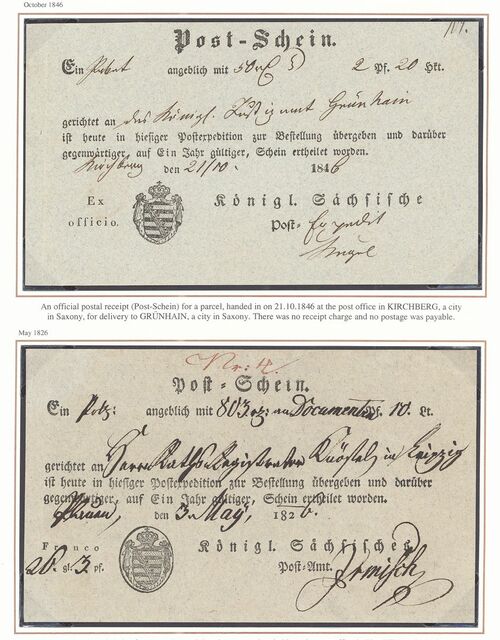 October 1846
Post-Schein.
Ein Paket angeblich mit 50 2 Pf. 20 Lkt.
gerichtet an das Königl. Justizamt Grünhain
ist heute in hiesiger Postexpedition zur Bestellung übergeben und darüber
gegenwärtiger, auf Ein Jahr gültiger, Schein ertheilet worden.
Kirchberg den 21/10. 1846
Ex Königl. Sächsische
officio. Post-Expedit
An official postal receipt (Post-Schein) for a parcel, handed in on 21.10.1846 at the post office in KIRCHBERG, a city
in Saxony, for delivery to GRÜNHAIN, a city in Saxony. There was no receipt charge and no postage was payable.
May 1826
Nr: 4.
Post-Schein.
Ein angeblich mit 803 an Documenten Pf. 10. Lt.
gerichtet an Herrn Raths Registrator in Leipzig
ist heute in hiesiger Postexpedition zur Bestellung übergeben und darüber
gegenwärtiger, auf Ein Jahr gültiger, Schein ertheilet worden.
Plauen, den 3. May, 1826.
Franco Königl. Sächsisches
26. gl. 3. pf. Post-Amt. Irmisch